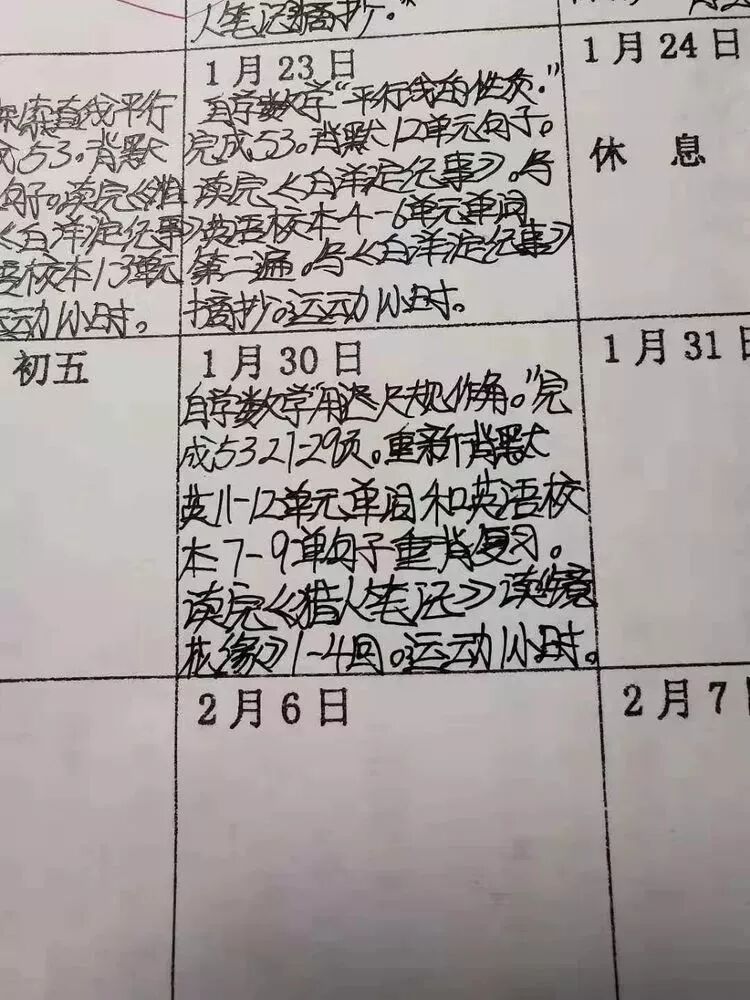 人笔记》摘抄。"
1月23日
1月24日
休 息
探索直线平行
成53。背默
句子。读完《猎
《白洋淀纪事》
语校本1-3单元
运动1小时。
自学数学"平行线的性质."
完成53。背默12单元句子。
读完《白洋淀纪事》。写
英语校本4-6单元单词
第二遍。写《白洋淀纪事》
摘抄。运动1小时。
初五
1月30日
1月31日
自学数学"用尺规作角。"完
成53 21-29页。重新背默
英11-12单元单词和英语校
本7-9单句子重背复习。
读完《猎人笔记》读《镜
花缘》1-4回。运动1小时。
2月6日
2月7